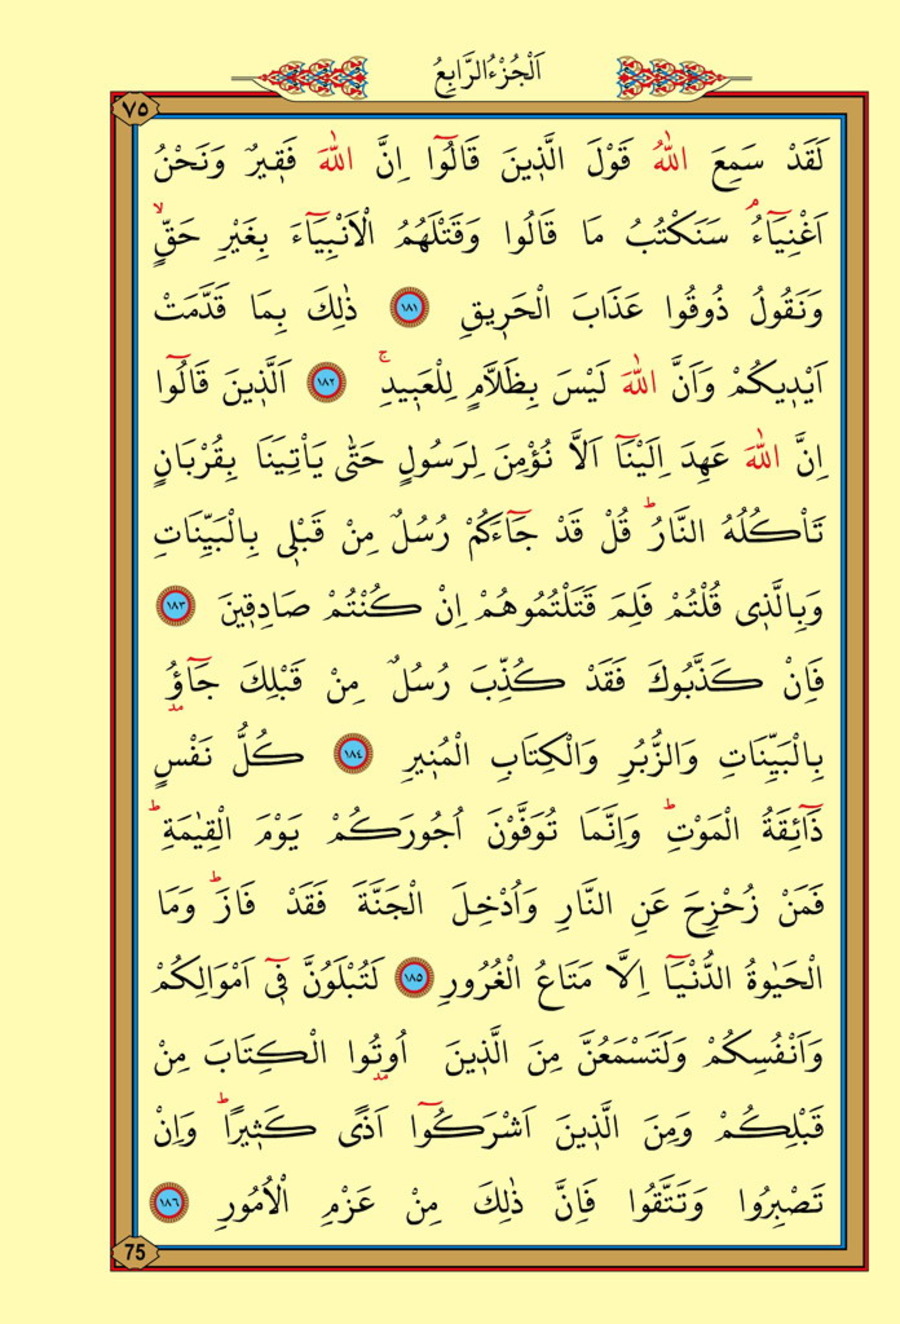 اَلْجُزْءُ الرَّابِعُ
٧٥
لَقَدْ سَمِعَ اللّٰهُ قَوْلَ الَّذ۪ينَ قَالُٓوا اِنَّ اللّٰهَ فَق۪يرٌ وَنَحْنُ
اَغْنِيَٓاءُۢ سَنَكْتُبُ مَا قَالُوا وَقَتْلَهُمُ الْاَنْبِيَٓاءَ بِغَيْرِ حَقٍّۙ
وَنَقُولُ ذُوقُوا عَذَابَ الْحَر۪يقِ ﴿١٨١﴾ ذٰلِكَ بِمَا قَدَّمَتْ
اَيْد۪يكُمْ وَاَنَّ اللّٰهَ لَيْسَ بِظَلَّامٍ لِلْعَب۪يدِۚ ﴿١٨٢﴾ اَلَّذ۪ينَ قَالُٓوا
اِنَّ اللّٰهَ عَهِدَ اِلَيْنَٓا اَلَّا نُؤْمِنَ لِرَسُولٍ حَتّٰى يَأْتِيَنَا بِقُرْبَانٍ
تَأْكُلُهُ النَّارُۜ قُلْ قَدْ جَٓاءَكُمْ رُسُلٌ مِنْ قَبْل۪ى بِالْبَيِّنَاتِ
وَبِالَّذ۪ى قُلْتُمْ فَلِمَ قَتَلْتُمُوهُمْ اِنْ كُنْتُمْ صَادِق۪ينَ ﴿١٨٣﴾
فَاِنْ كَذَّبُوكَ فَقَدْ كُذِّبَ رُسُلٌ مِنْ قَبْلِكَ جَٓاؤُ۫
بِالْبَيِّنَاتِ وَالزُّبُرِ وَالْكِتَابِ الْمُن۪يرِ ﴿١٨٤﴾ كُلُّ نَفْسٍ
ذَٓائِقَةُ الْمَوْتِۜ وَاِنَّمَا تُوَفَّوْنَ اُجُورَكُمْ يَوْمَ الْقِيٰمَةِۜ
فَمَنْ زُحْزِحَ عَنِ النَّارِ وَاُدْخِلَ الْجَنَّةَ فَقَدْ فَازَۜ وَمَا
الْحَيٰوةُ الدُّنْيَٓا اِلَّا مَتَاعُ الْغُرُورِ ﴿١٨٥﴾ لَتُبْلَوُنَّ ف۪ٓى اَمْوَالِكُمْ
وَاَنْفُسِكُمْ وَلَتَسْمَعُنَّ مِنَ الَّذ۪ينَ اُو۫تُوا الْكِتَابَ مِنْ
قَبْلِكُمْ وَمِنَ الَّذ۪ينَ اَشْرَكُٓوا اَذًى كَث۪يرًاۜ وَاِنْ
تَصْبِرُوا وَتَتَّقُوا فَاِنَّ ذٰلِكَ مِنْ عَزْمِ الْاُمُورِ ﴿١٨٦﴾
75